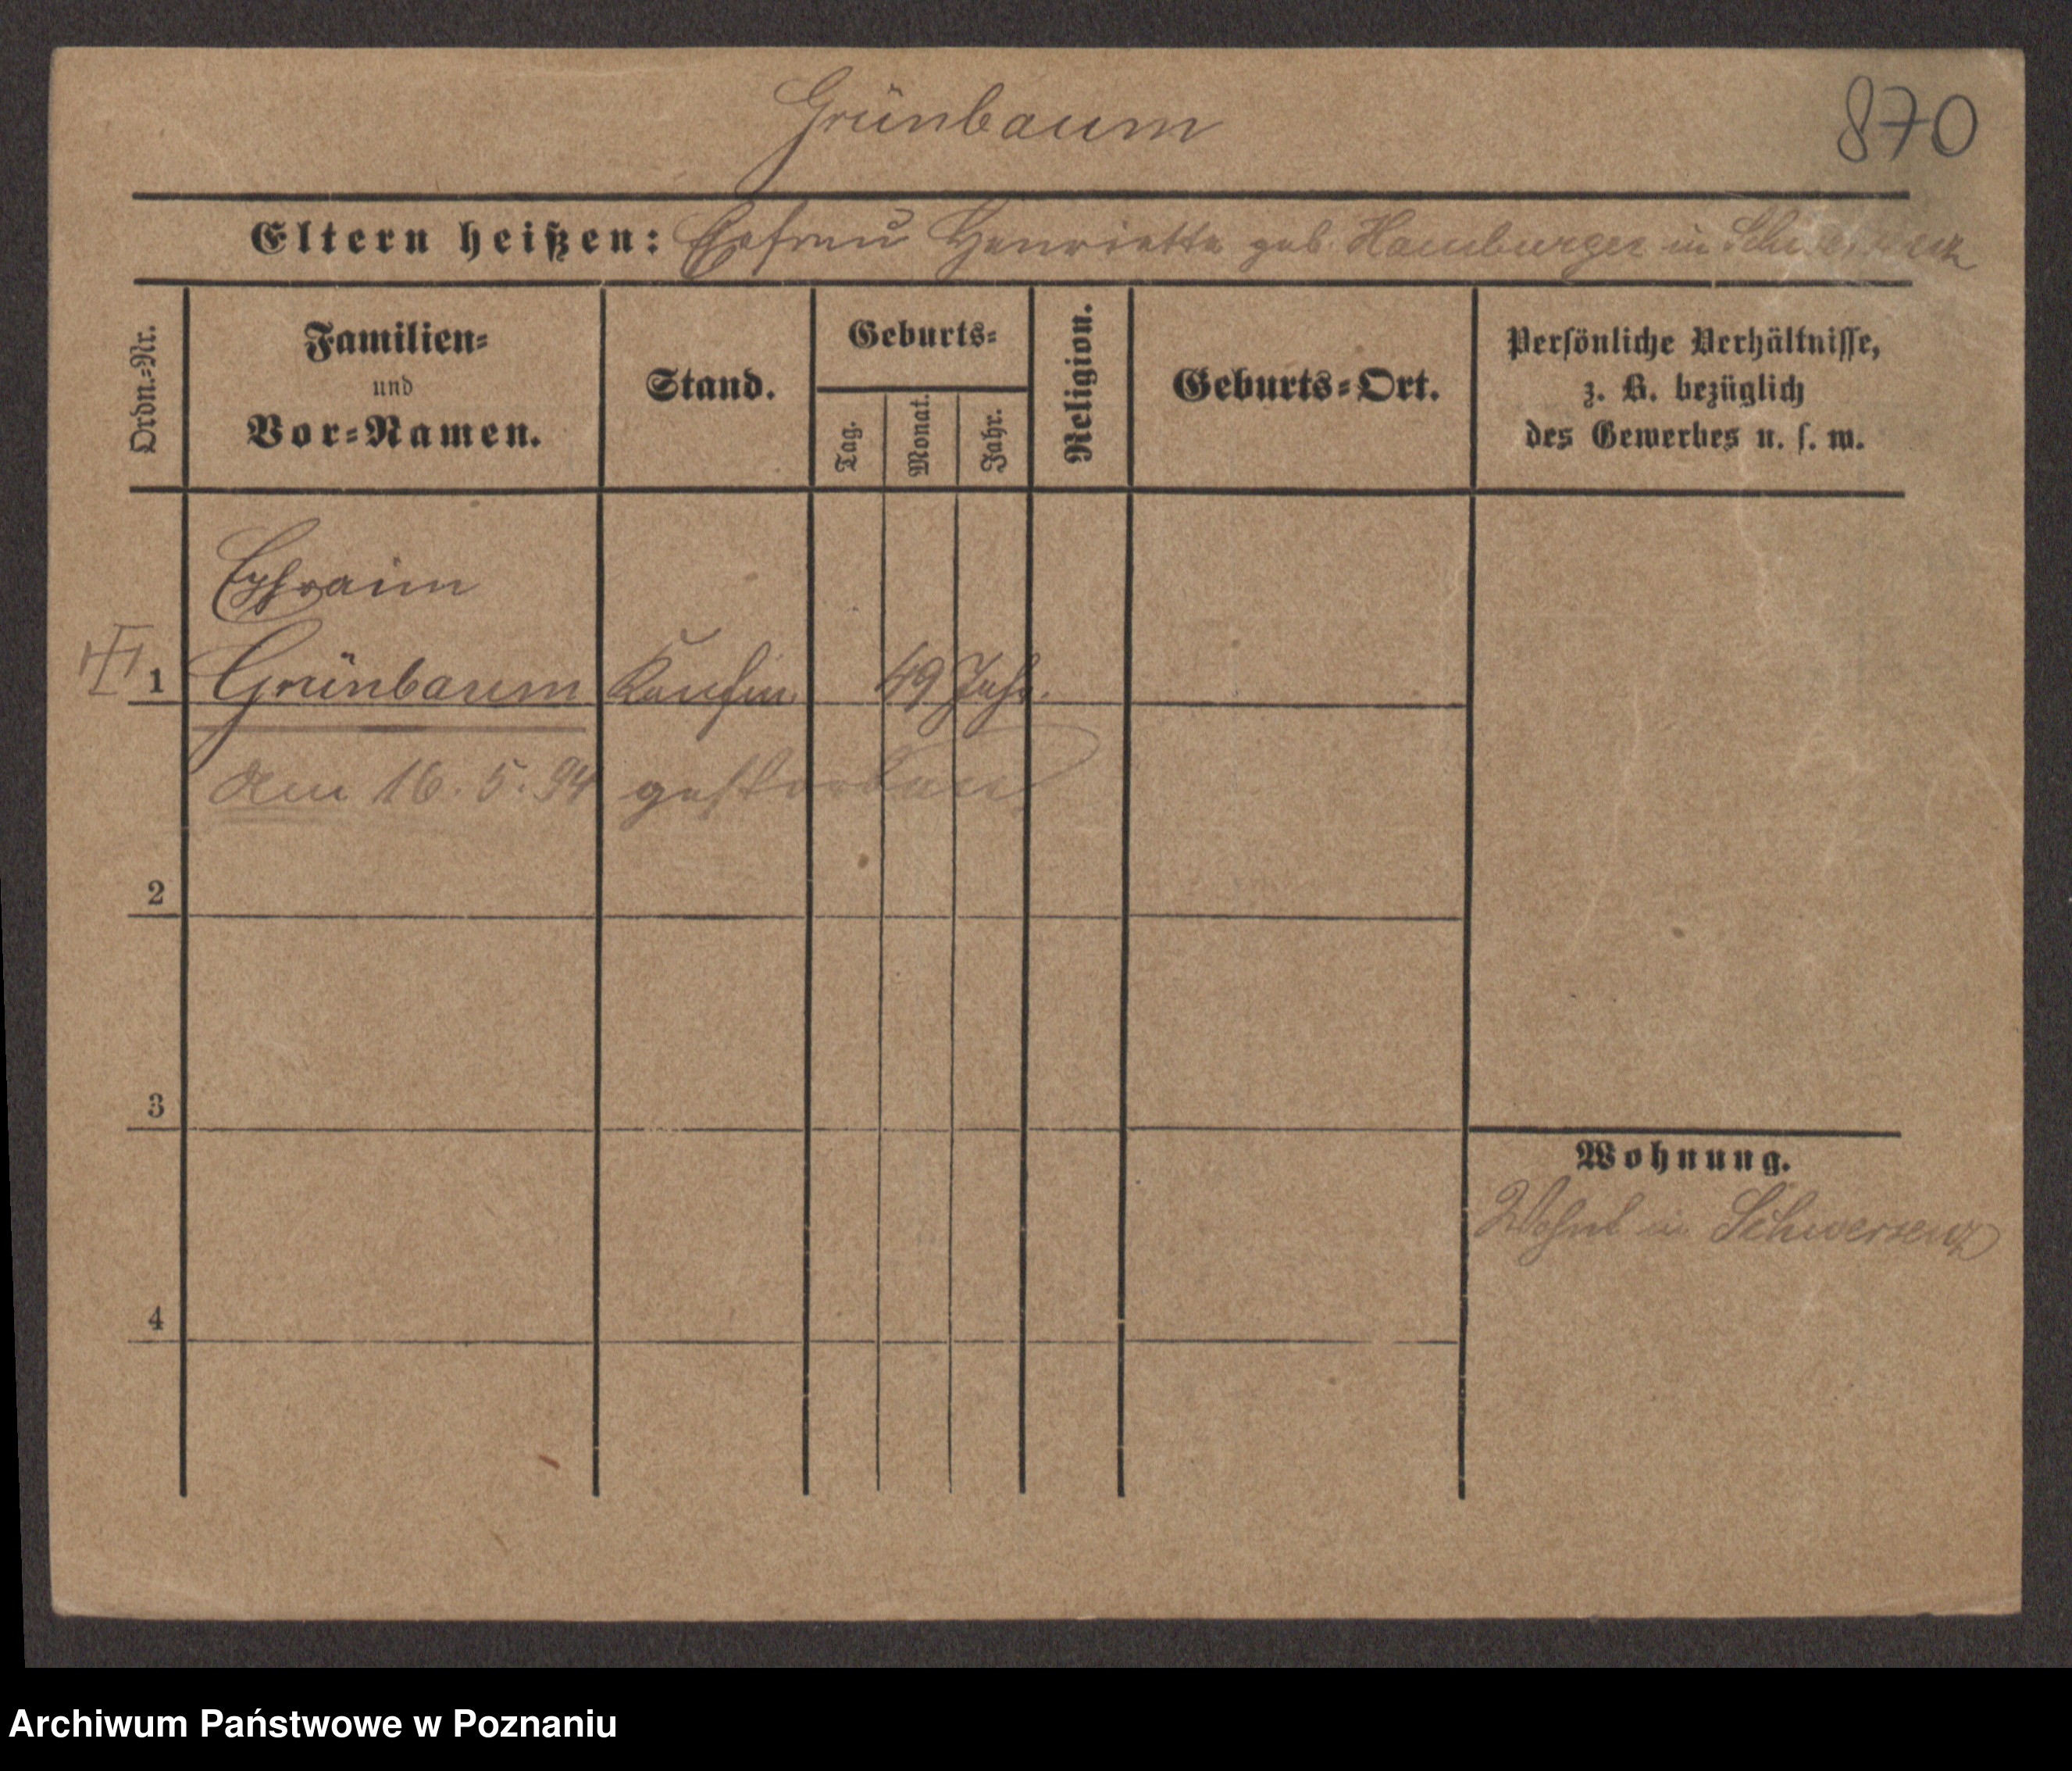 Grünbaum
870
Eltern heißen: Ehefrau Henriette geb. Hamburger in Schwersenz
Ordn.=Nr.
Familien=
und
Vor=Namen.
Stand.
Geburts=
Tag.
Monat.
Jahr.
Religion.
Geburts=Ort.
Persönliche Verhältnisse,
z. B. bezüglich
des Gewerbes u. s. w.
Ephraim
1 Grünbaum Kaufm. 49 Jahr.
am 16. 5. 94 gestorben
2
3
Wohnung.
Wohnt in Schwersenz
4
Archiwum Państwowe w Poznaniu